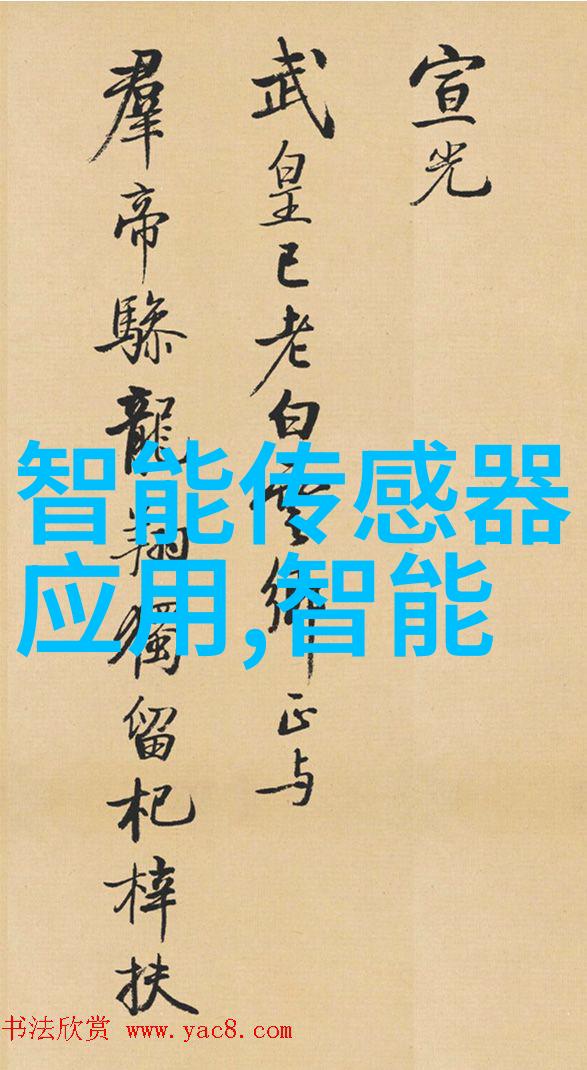 宣光
武皇已老白雲鄉正与
羣帝驂龍翔獨留杞梓扶
智能传感器
应用,智能
书法欣赏 www.yac8.com